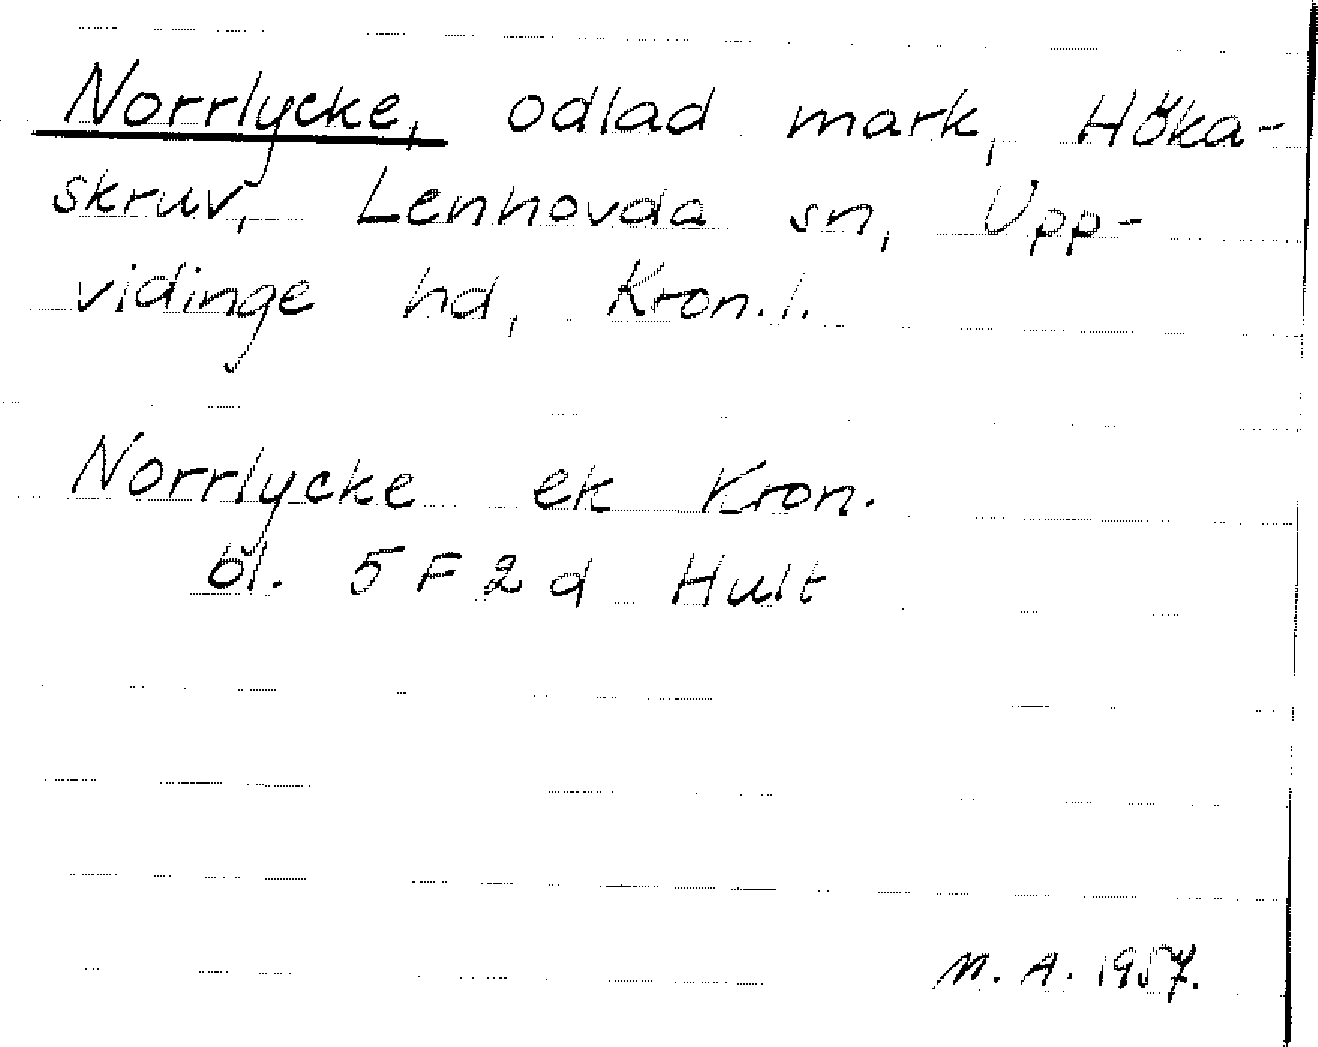 Norrlycke, odlad mark, Höka-
skruv, Lenhovda sn, Upp-
vidinge hd, Kron.l.
Norrlycke ek Kron.
bl. 5 F 2 d Hult
M. A. 1957.